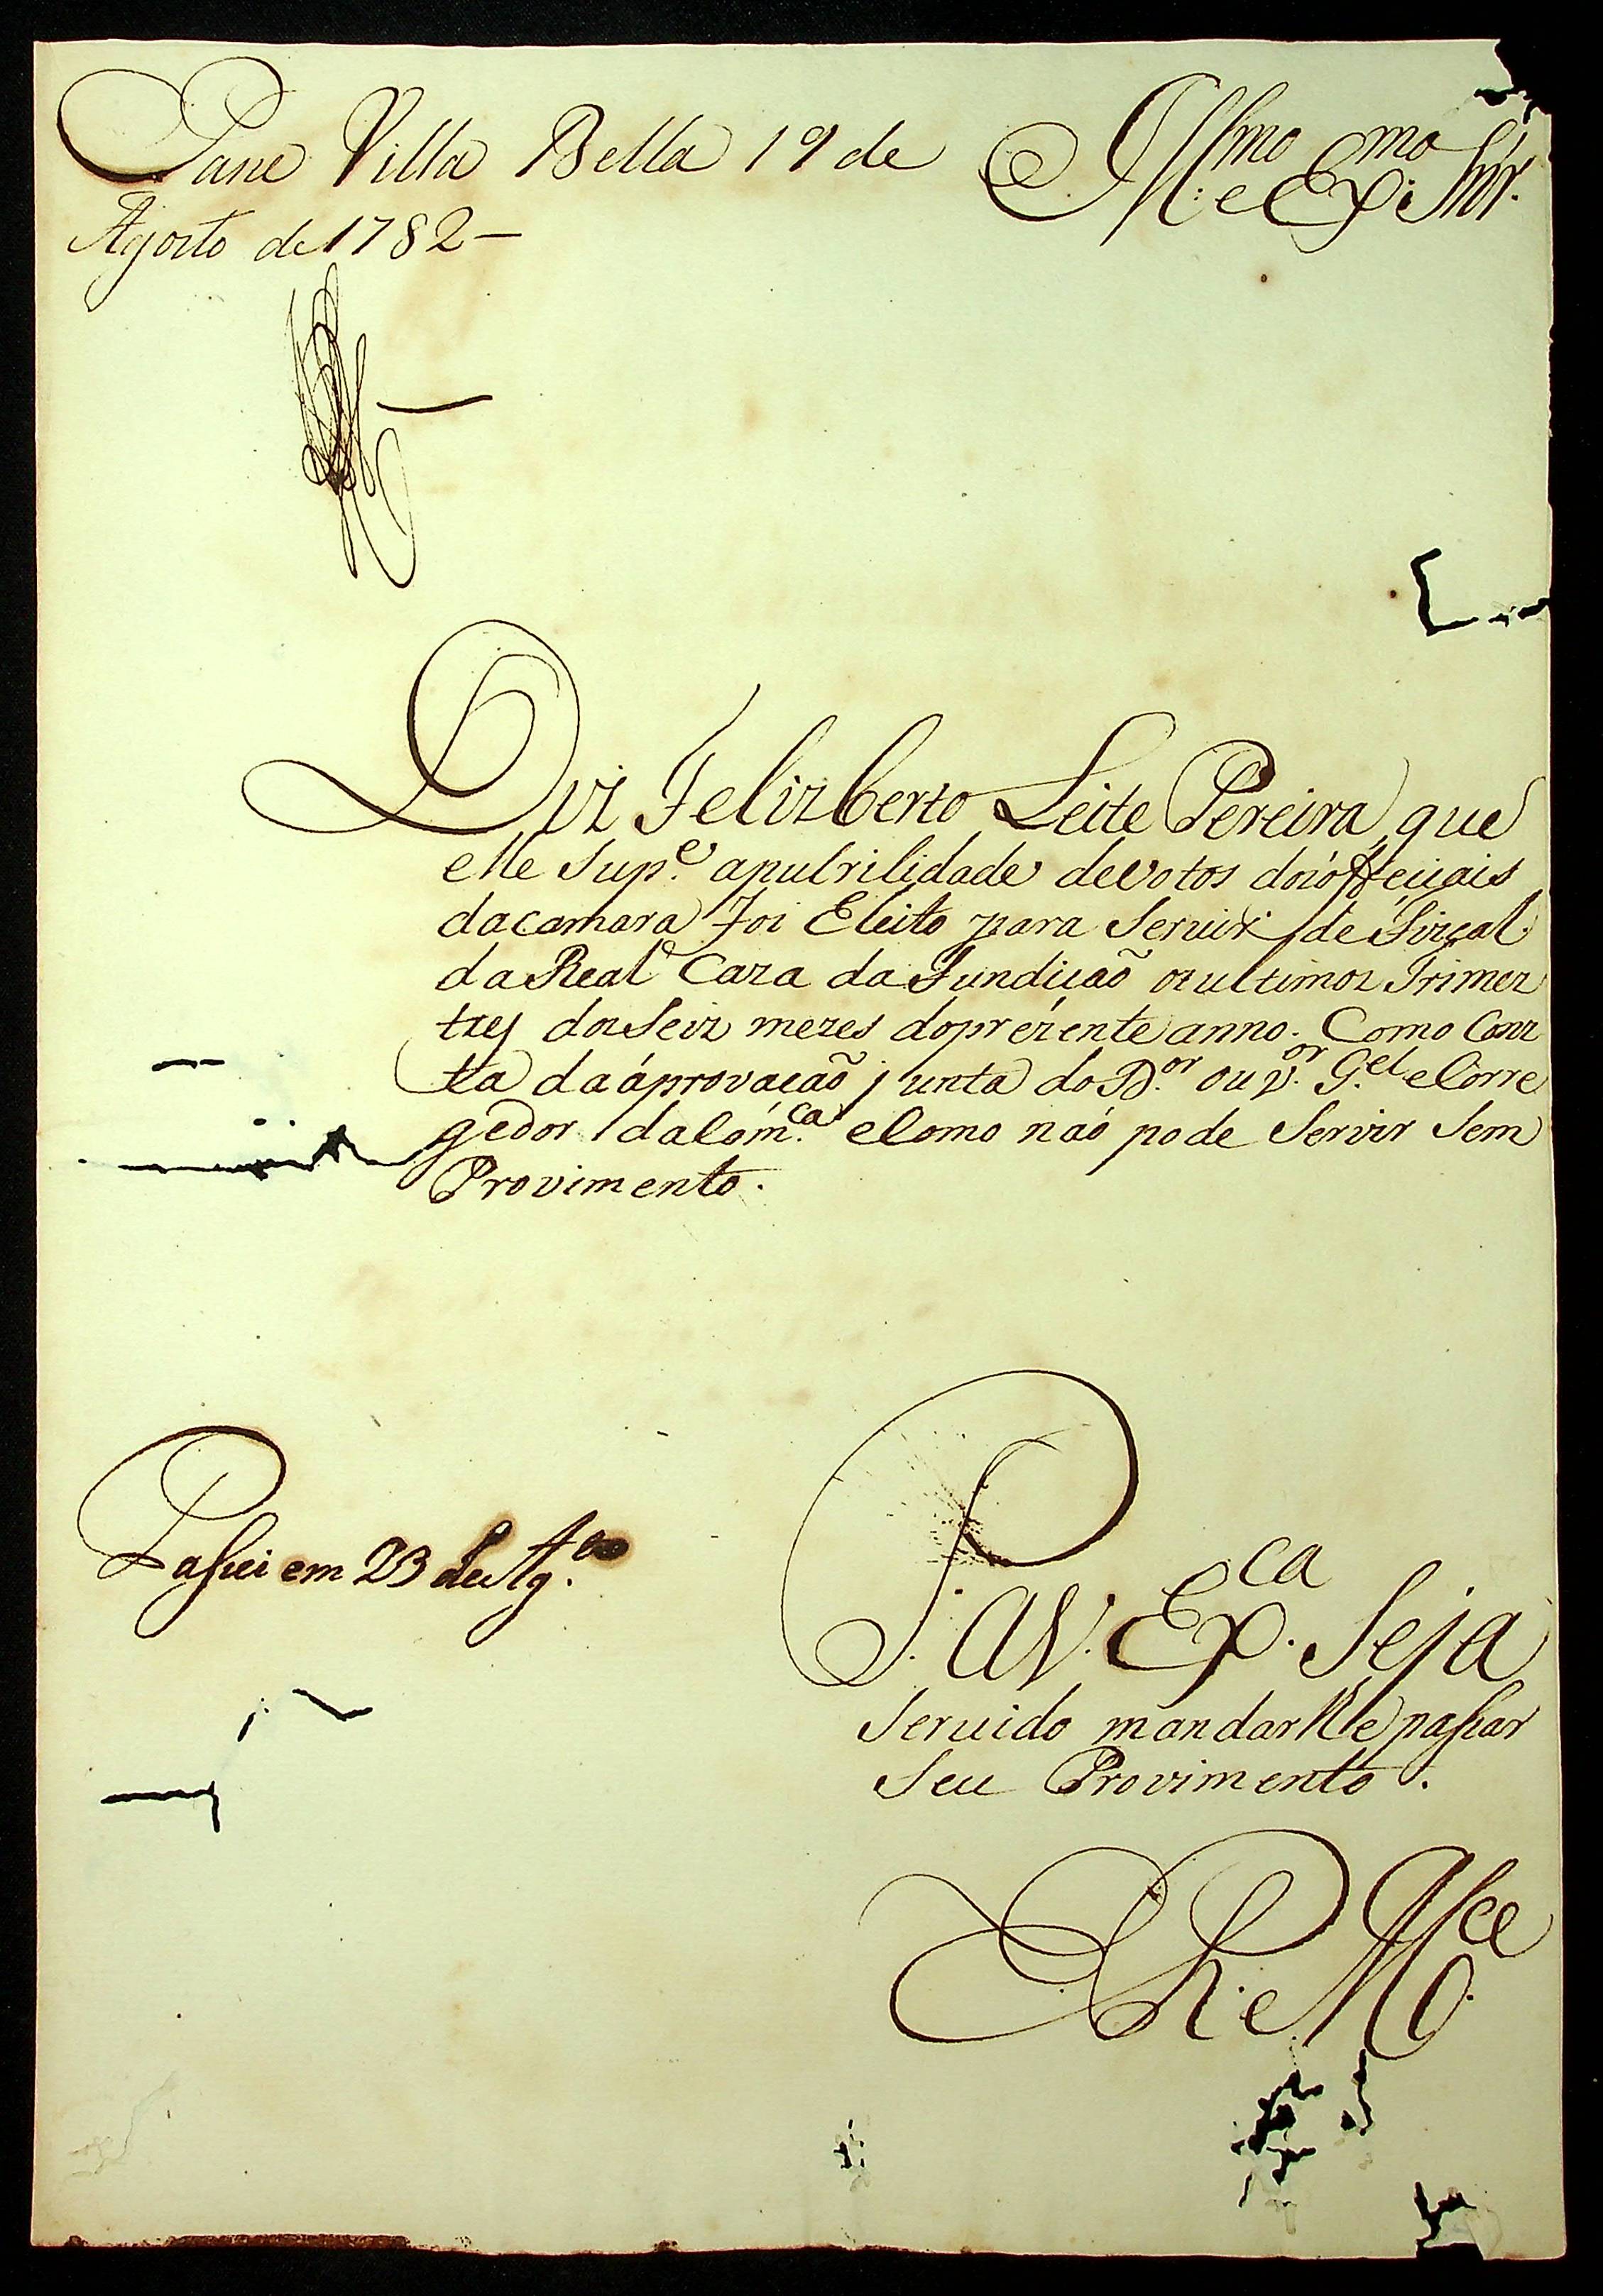 Pase Villa Bella 19 de
Agosto de 1782 —
Illmo. e Exmo. Snr.
Diz Felizberto Leite Pereira, que
elle Supe. apulrilidade devotos dos óffeciais
dacamara foi Eleito para Servir de Fiscal
da Real Caza da Fundição os ultimos Trimes
tres dos Seis mezes doprezente anno. Como Cons
ta da áprovação junta do Dor. ouvor. Gel. eCorre
gedor daComca. eComo não pode Servir Sem
Provimento.
Passei em 23 de Ago.
P. aV. Exca. Seja
Servido mandarlle passar
Seu Provimento.
E R. e Mce.